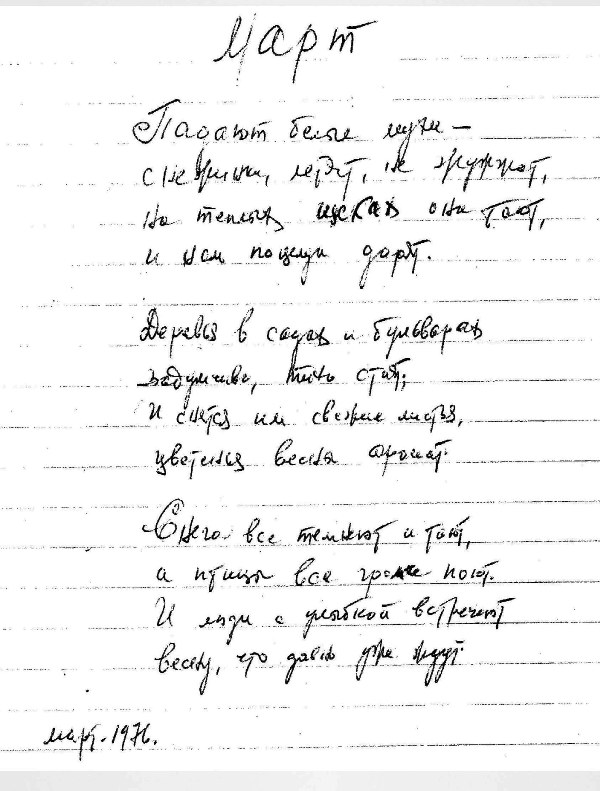 Март
Падают белые мухи —
снежинки, летят, не жужжат,
на теплых щеках они тают,
и нам поцелуи дарят.
Деревья в садах и бульварах
задумчиво, тихо стоят;
И снятся им свежие листья,
цветенья весны аромат.
Снега все темнеют и тают,
а птицы все громче поют.
И люди с улыбкой встречают
весну, что давно уже ждут.
март. 1976.